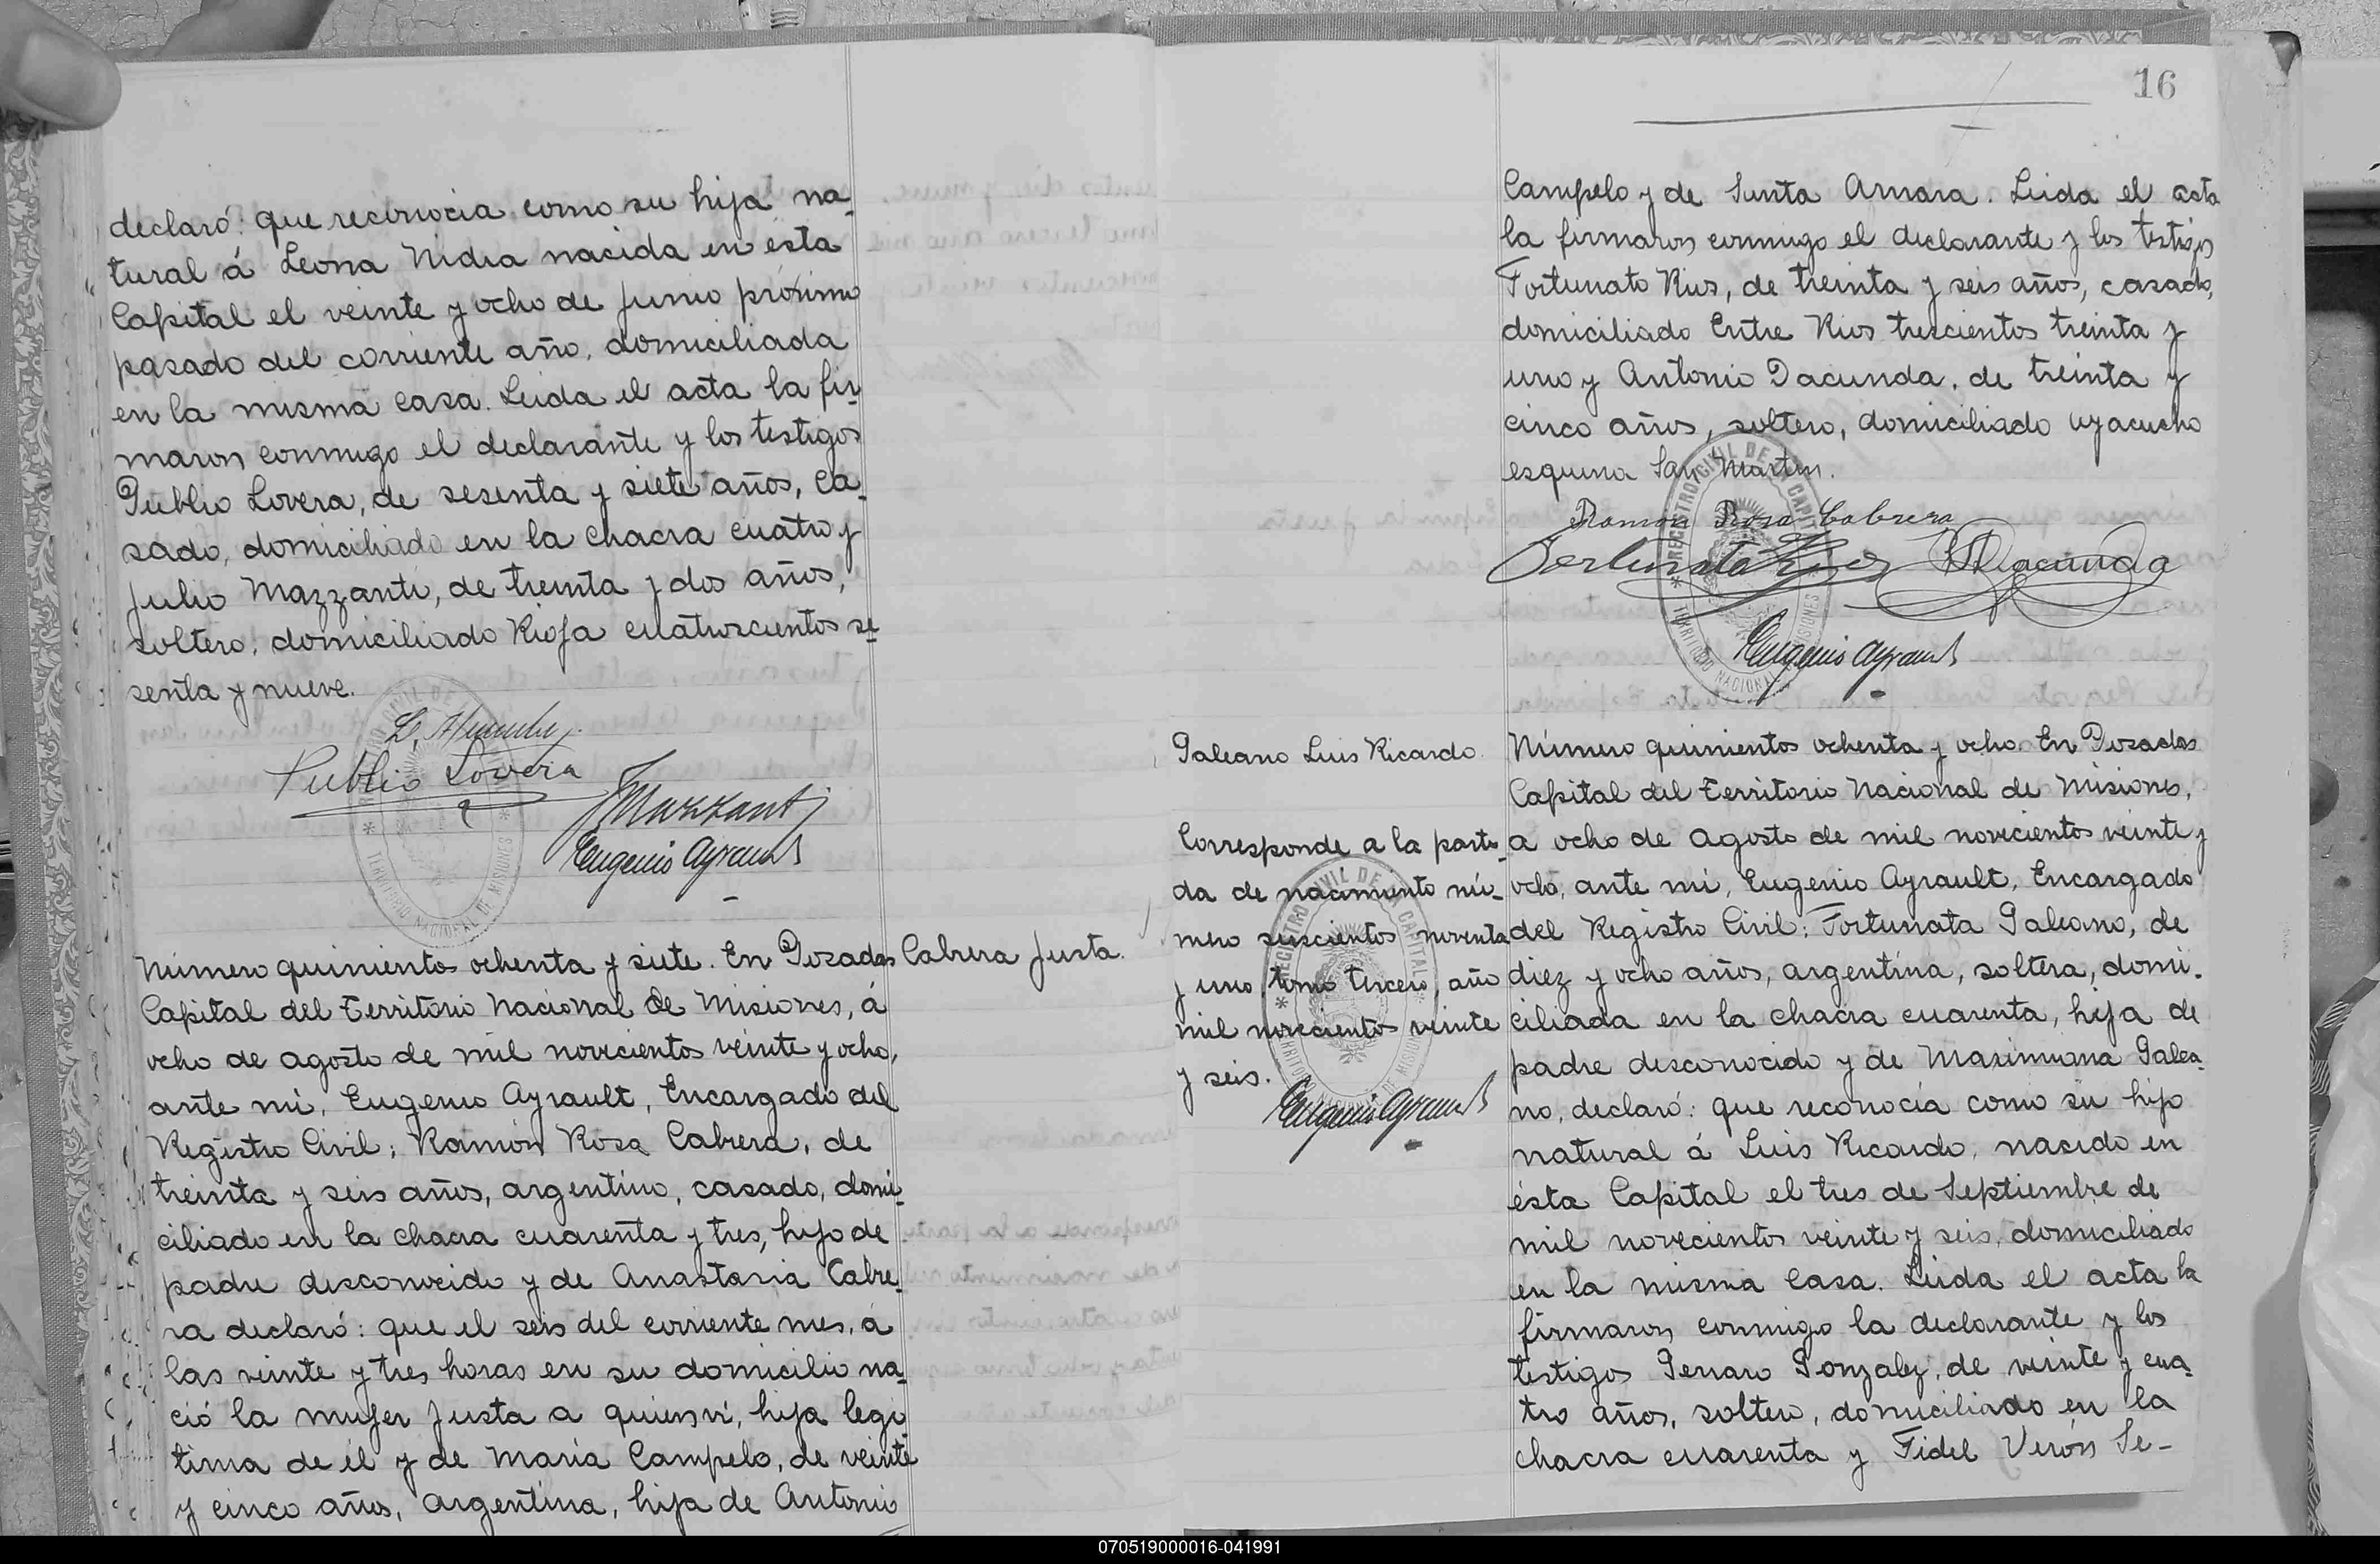 declaró: que reconocia como su hija na-
tural á Leona Nidia nacida en esta
Capital el veinte y ocho de Junio próximo
pasado del corriente año, domiciliada
en la misma casa. Leida el acta la fir-
maron conmigo el declarante y los testigos
Publio Lovera, de sesenta y siete años, ca-
sado, domiciliado en la chacra cuatro y
Julio Mazzanti, de treinta y dos años,
soltero, domiciliado Rioja cuatroscientos se-
senta y nueve.
Publio Lovera
JMazzanti
Eugenio Ayrault
Número quinientos ochenta y siete. En Posadas
Cabrera Justa.
Capital del Territorio Nacional de Misiones, á
ocho de agosto de mil novecientos veinte y ocho,
ante mi, Eugenio Ayrault, Encargado del
Registro Civil; Ramón Rosa Cabrera, de
treinta y seis años, argentino, casado, domi-
ciliado en la chacra cuarenta y tres, hijo de
padre desconocido y de Anastasia Cabre-
ra declaró: que el seis del corriente mes, á
las veinte y tres horas en su domicilio na-
ció la mujer Justa a quien ví, hija legi-
tima de él y de María Campelo, de veinte
y cinco años, argentina, hija de Antonio
16
Campelo y de Santa Amara. Leida el acta
la firmaron conmigo el declarante y los testigos
Fortunato Rios, de treinta y seis años, casado,
domiciliado Entre Rios trescientos treinta y
uno y Antonio Dacunda, de treinta y
cinco años, soltero, domiciliado Ayacucho
esquina San Martin.
Ramon Rosa Cabrera
Fortunato Rios ADacunda
Eugenio Ayrault
REGISTRO CIVIL DE LA CAPITAL
TERRITORIO NACIONAL DE MISIONES
Galeano Luis Ricardo.
Corresponde a la parti-
da de nacimiento nú-
mero seiscientos noventa
y uno, tomo tercero, año
mil novecientos veinte
y seis.
Eugenio Ayrault
Número quinientos ochenta y ocho. En Posadas
Capital del Territorio Nacional de Misiones,
a ocho de agosto de mil novecientos veinte y
ocho, ante mi, Eugenio Ayrault, Encargado
del Registro Civil; Fortunata Galeano, de
diez y ocho años, argentina, soltera, domi-
ciliada en la chacra cuarenta, hija de
padre desconocido y de Maximiana Galea-
no, declaró: que reconocía como su hijo
natural á Luis Ricardo, nacido en
ésta Capital el tres de Septiembre de
mil novecientos veinte y seis, domiciliado
en la misma casa. Leida el acta la
firmaron conmigo la declarante y los
testigos Genaro Gonzalez, de veinte y cua-
tro años, soltero, domiciliado en la
chacra cuarenta y Fidel Verón Se-
070519000016-041991